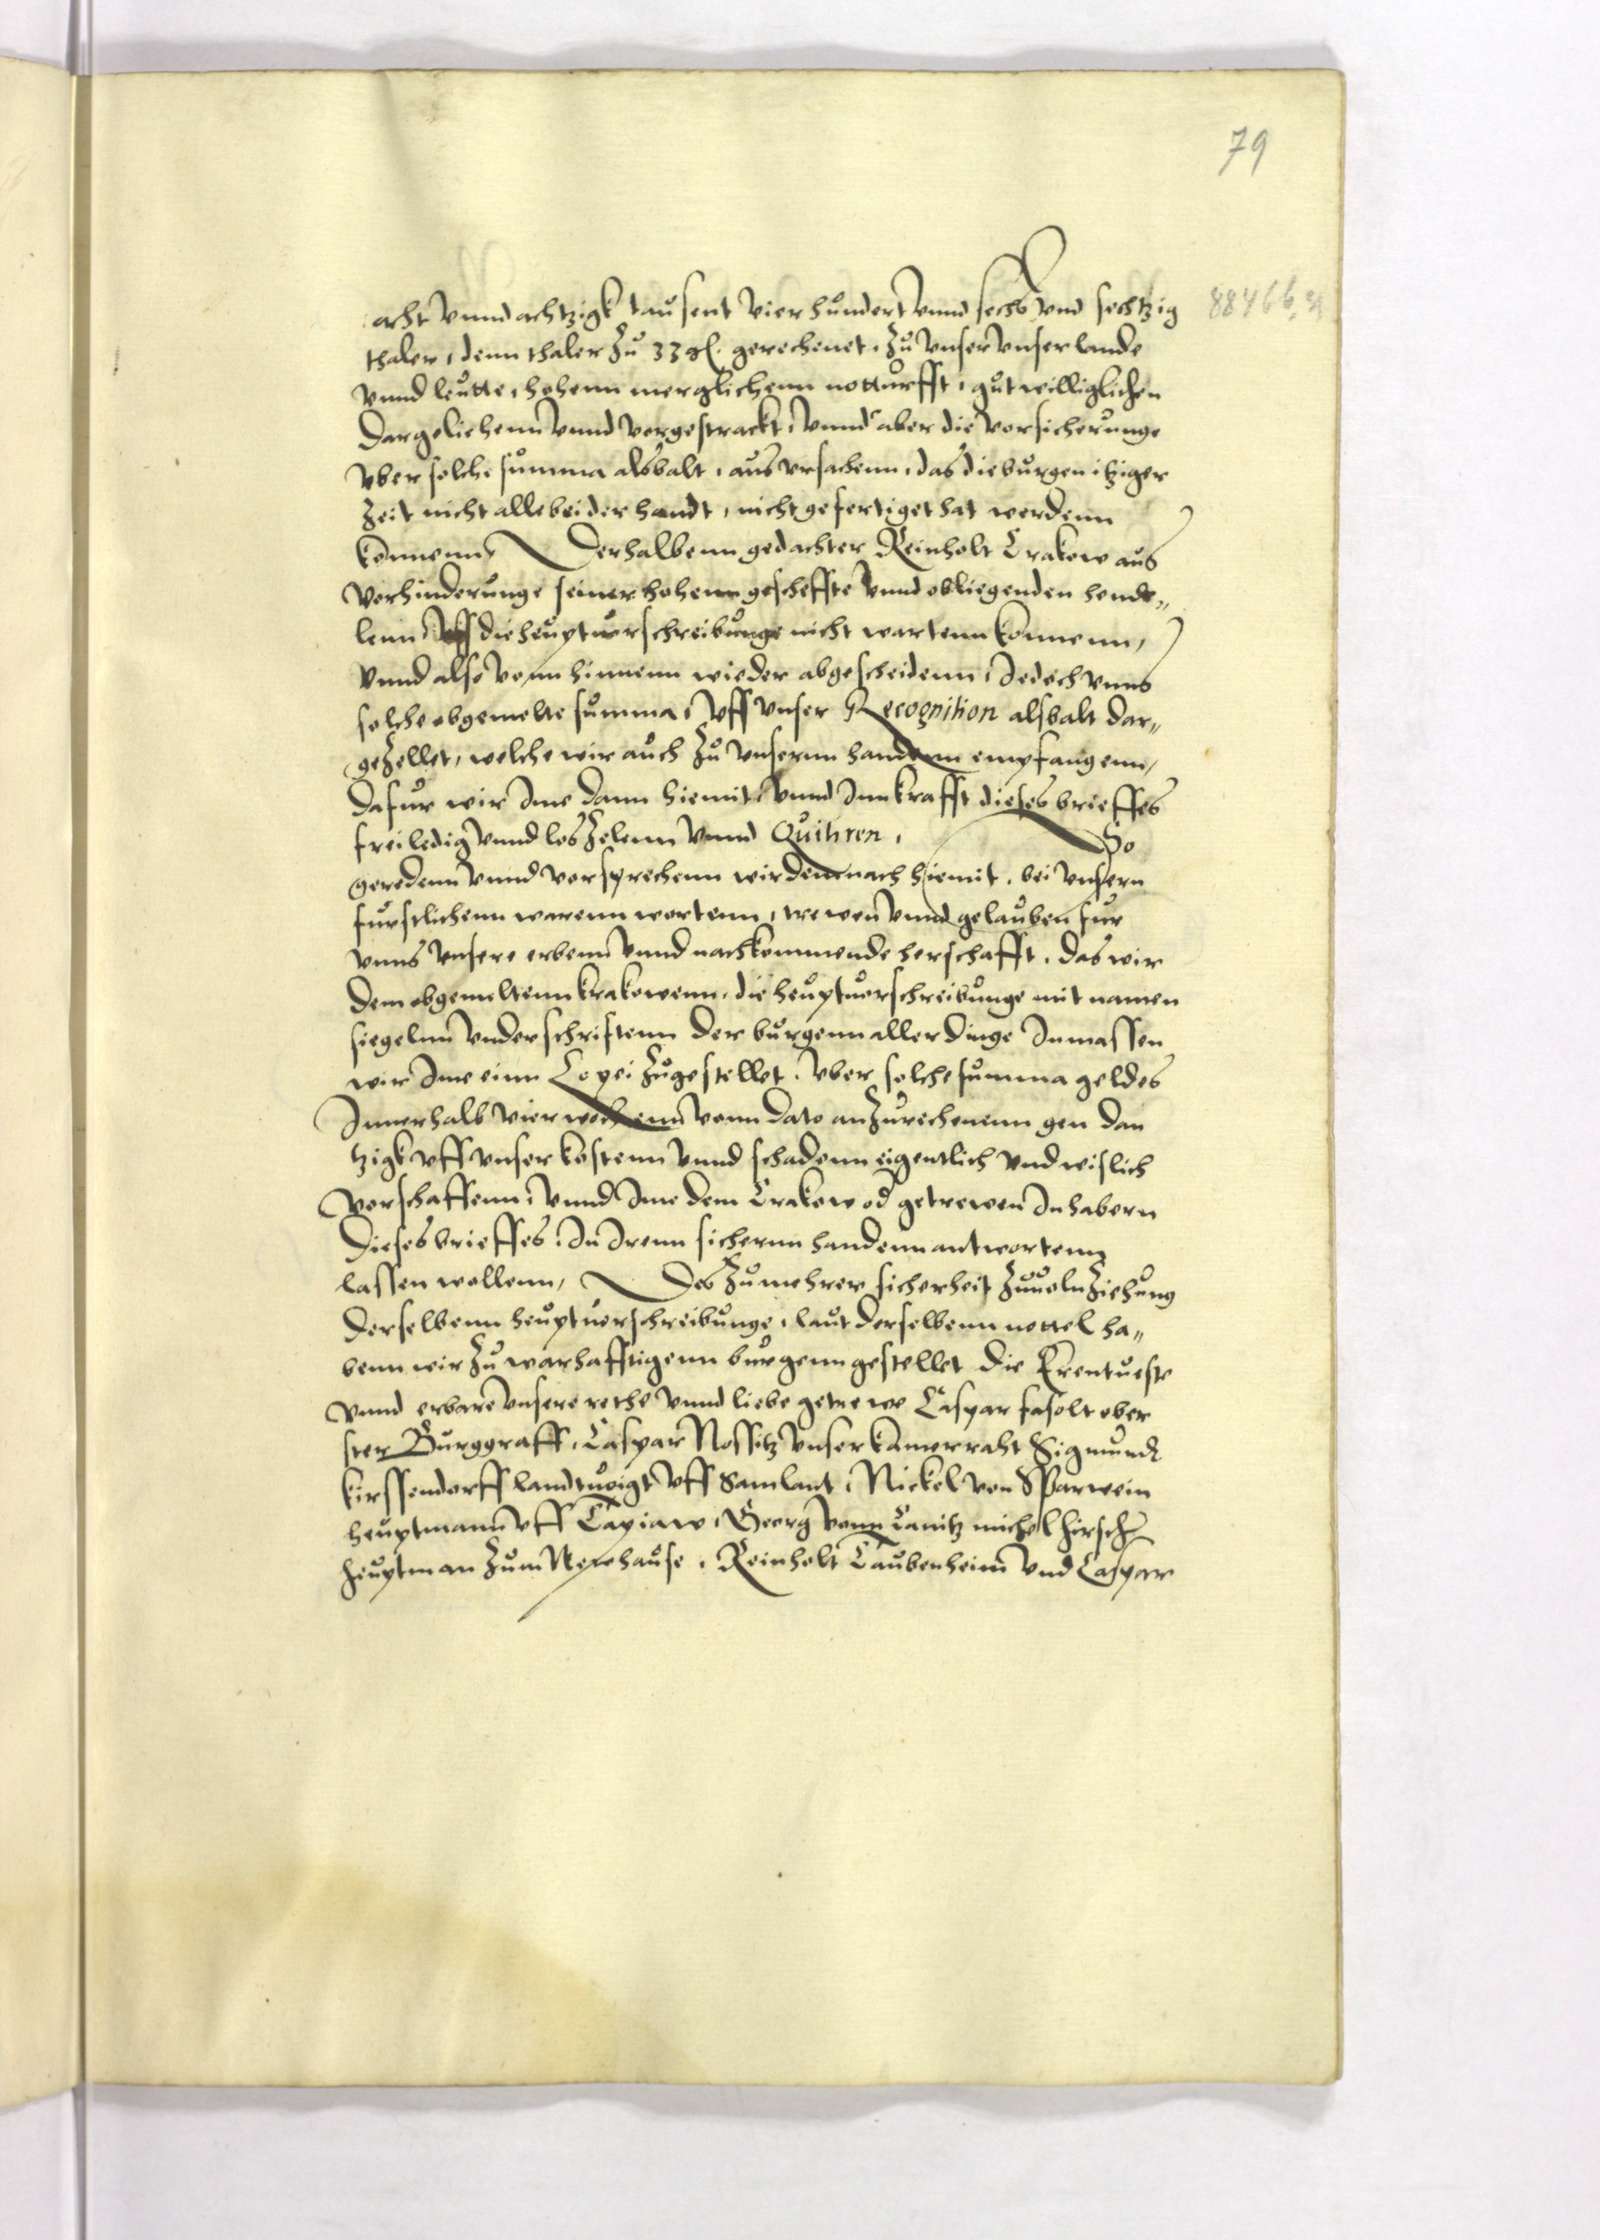 79
acht vnnd achtzigk tausent vier hundert vnnd sechs vnd sechtzig
88466
thaler, denn thaler zu 33 gl. gerechenet, zu vnser vnser lande
vnnd leutte, hohenn merglichenn notturfft, gutwilliglichen
dargeliehenn vnnd vorgestrackt, vnnd aber die vorsicherunge
vber solche summa alsbalt, aus vrsachenn, das die burgen itziger
zeit nicht alle bei der handt, nicht gefertiget hat werdenn
konnenn, Derhalbenn gedachter Reinholt Crakow aus
vorhinderunge seiner hohenn gescheffte vnnd obliegenden hende„
lenn, vff die heuptvorschreibunge nicht wartenn konnenn,
vnnd also vonn hinnenn wieder abgescheidenn, Jedoch vnns
solche obgemelte summa, vff vnser Recognition alsbalt dar„
gezellet, welche wir auch zu vnsernn handenn empfangenn,
dafur wir Ime dann hiemit, vnnd Inn krafft dieses brieffes
frei ledig vnnd los zelenn vnnd Quitiren, So
geredenn vnnd vorsprechenn wir demnach hiemit, bei vnsern
furstlichenn warenn wortenn, trewen vnnd gelauben fur
vnns vnsere erbenn vnnd nachkommende herschafft, das wir
dem obgemeltenn krakowenn, die heuptvorschreibunge mit namen
siegelnn vnderschriftenn der burgenn aller dinge Inmassen
wir Ime einn Copei zugestellet, vber solche summa geldes
Innerhalb vier wochenn vonn dato anzurechenenn gen dan
tzigk vff vnser kostenn vnnd schadenn eigentlich vnd wislich
vorschaffenn, vnnd Ime dem Crakow od getrewen Inhabern
dieses brieffes, In Irenn sichernn handenn antwortenn
lassen wollenn, Des zu mehrer sicherheit zuuolnziehung
derselbenn heuptvorschreibunge, laut derselbenn nottel ha„
benn wir zu warhafftigenn burgenn gestellet die Erentueste
vnnd erbare vnsere rethe vnnd liebe getrewe Caspar fasolt ober
ster Burggraff, Caspar Nossitz vnser kamerraht Sigmund
kirssendorff landtuoigt vff Samlant, Nickel von Sparwein
heuptmann vff Tapiaw, Georg vonn Canitz michel hirsch
heuptman zum Newhause, Reinholt Taubenheim vnd Caspar